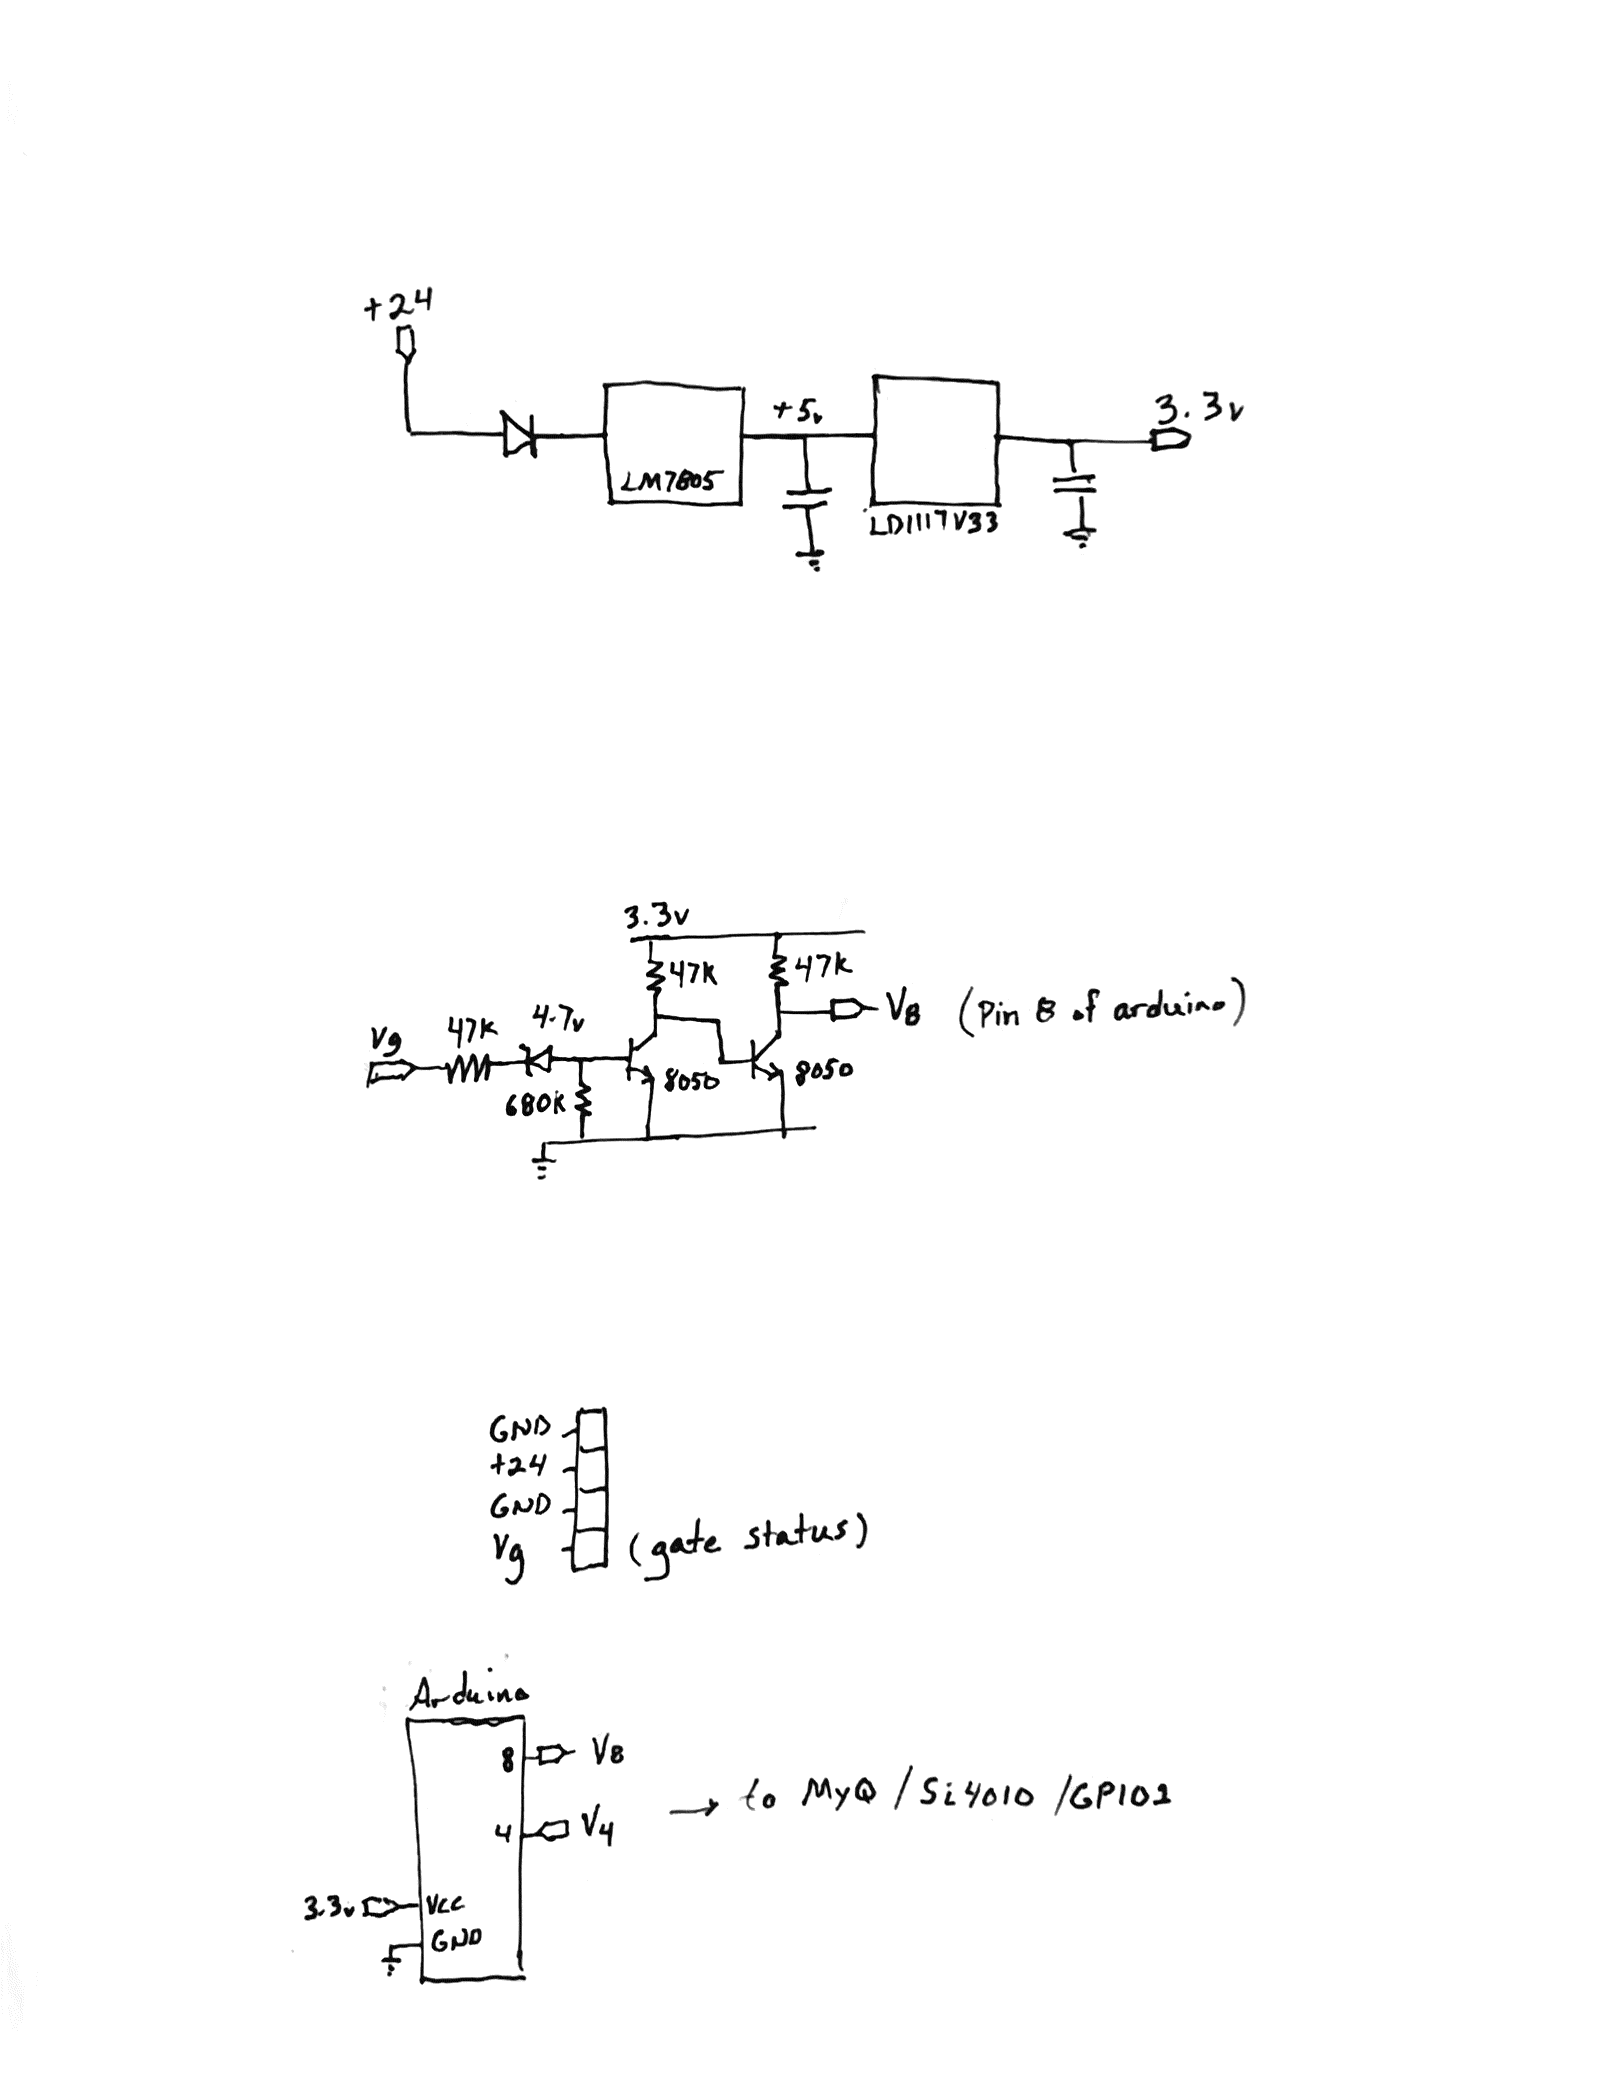 +24
+5v
3.3v
LM7805
LD1117V33
3.3v
47K
47K
V8 (Pin 8 of arduino)
Vg
47K
4.7v
8050
8050
680K
GND
+24
GND
Vg
(gate status)
Arduino
8
V8
→ to MyQ / Si4010 / GPIO2
4
V4
3.3v
VCC
GND